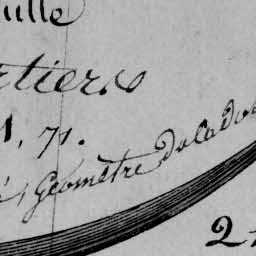 uille
rtiers
1, 71.
é, Géometre dela do
2